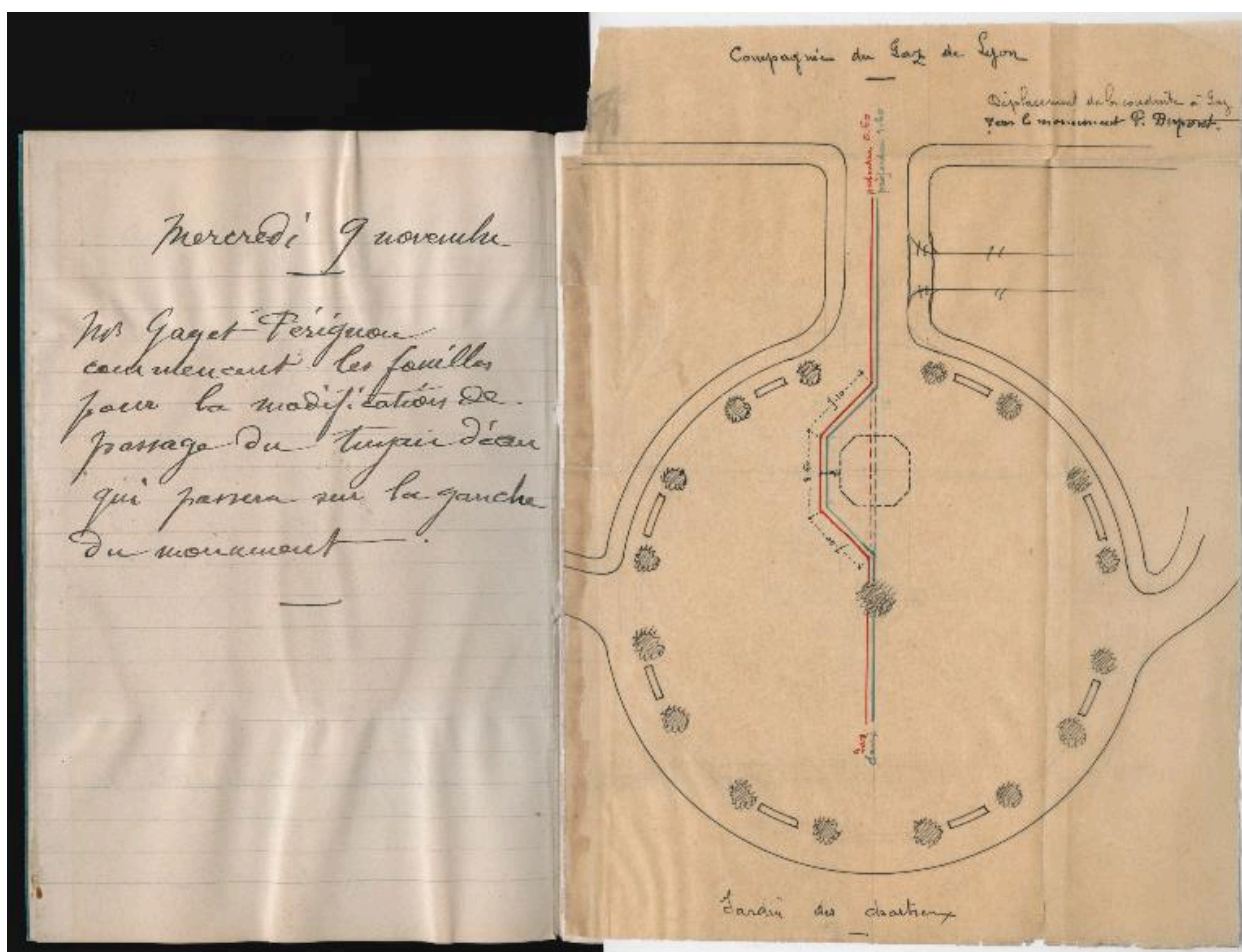 Mercredi 9 novembre
Mrs Gaget Pérignon
commencent les fouilles
pour la modification de
passage du tuyau d'eau
qui passera sur la gauche
du monument
Compagnie du Gaz de Lyon
Déplacement de la conduite à Gaz
pour le monument P. Dupont.
profondeur 0.60
profondeur 1.60
Gaz
Jardin des chartreux